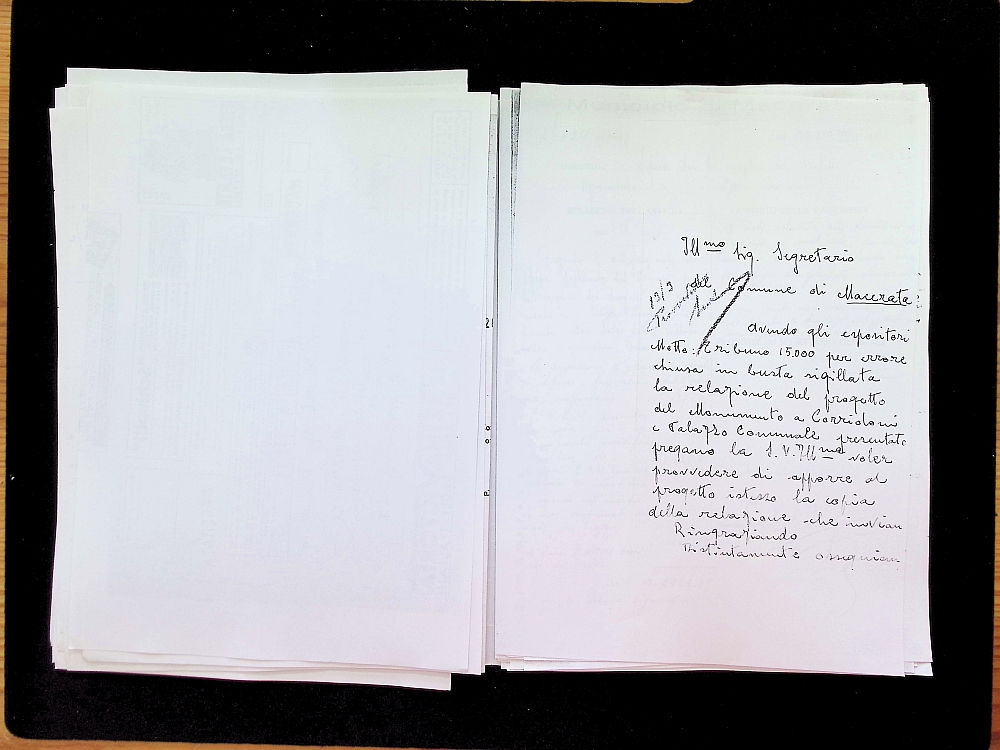 Ill.mo Sig. Segretario
del Comune di Macerata
13/3
Avendo gli espositori
Motto: Tribuno 15.000 per errore
chiusa in busta sigillata
la relazione del progetto
del Monumento a Corridoni
e Palazzo Comunale presentato
pregano la S.V. Ill.ma voler
provvedere di apporre al
progetto istesso la copia
della relazione che invian
Ringraziando
Distintamente ossequian